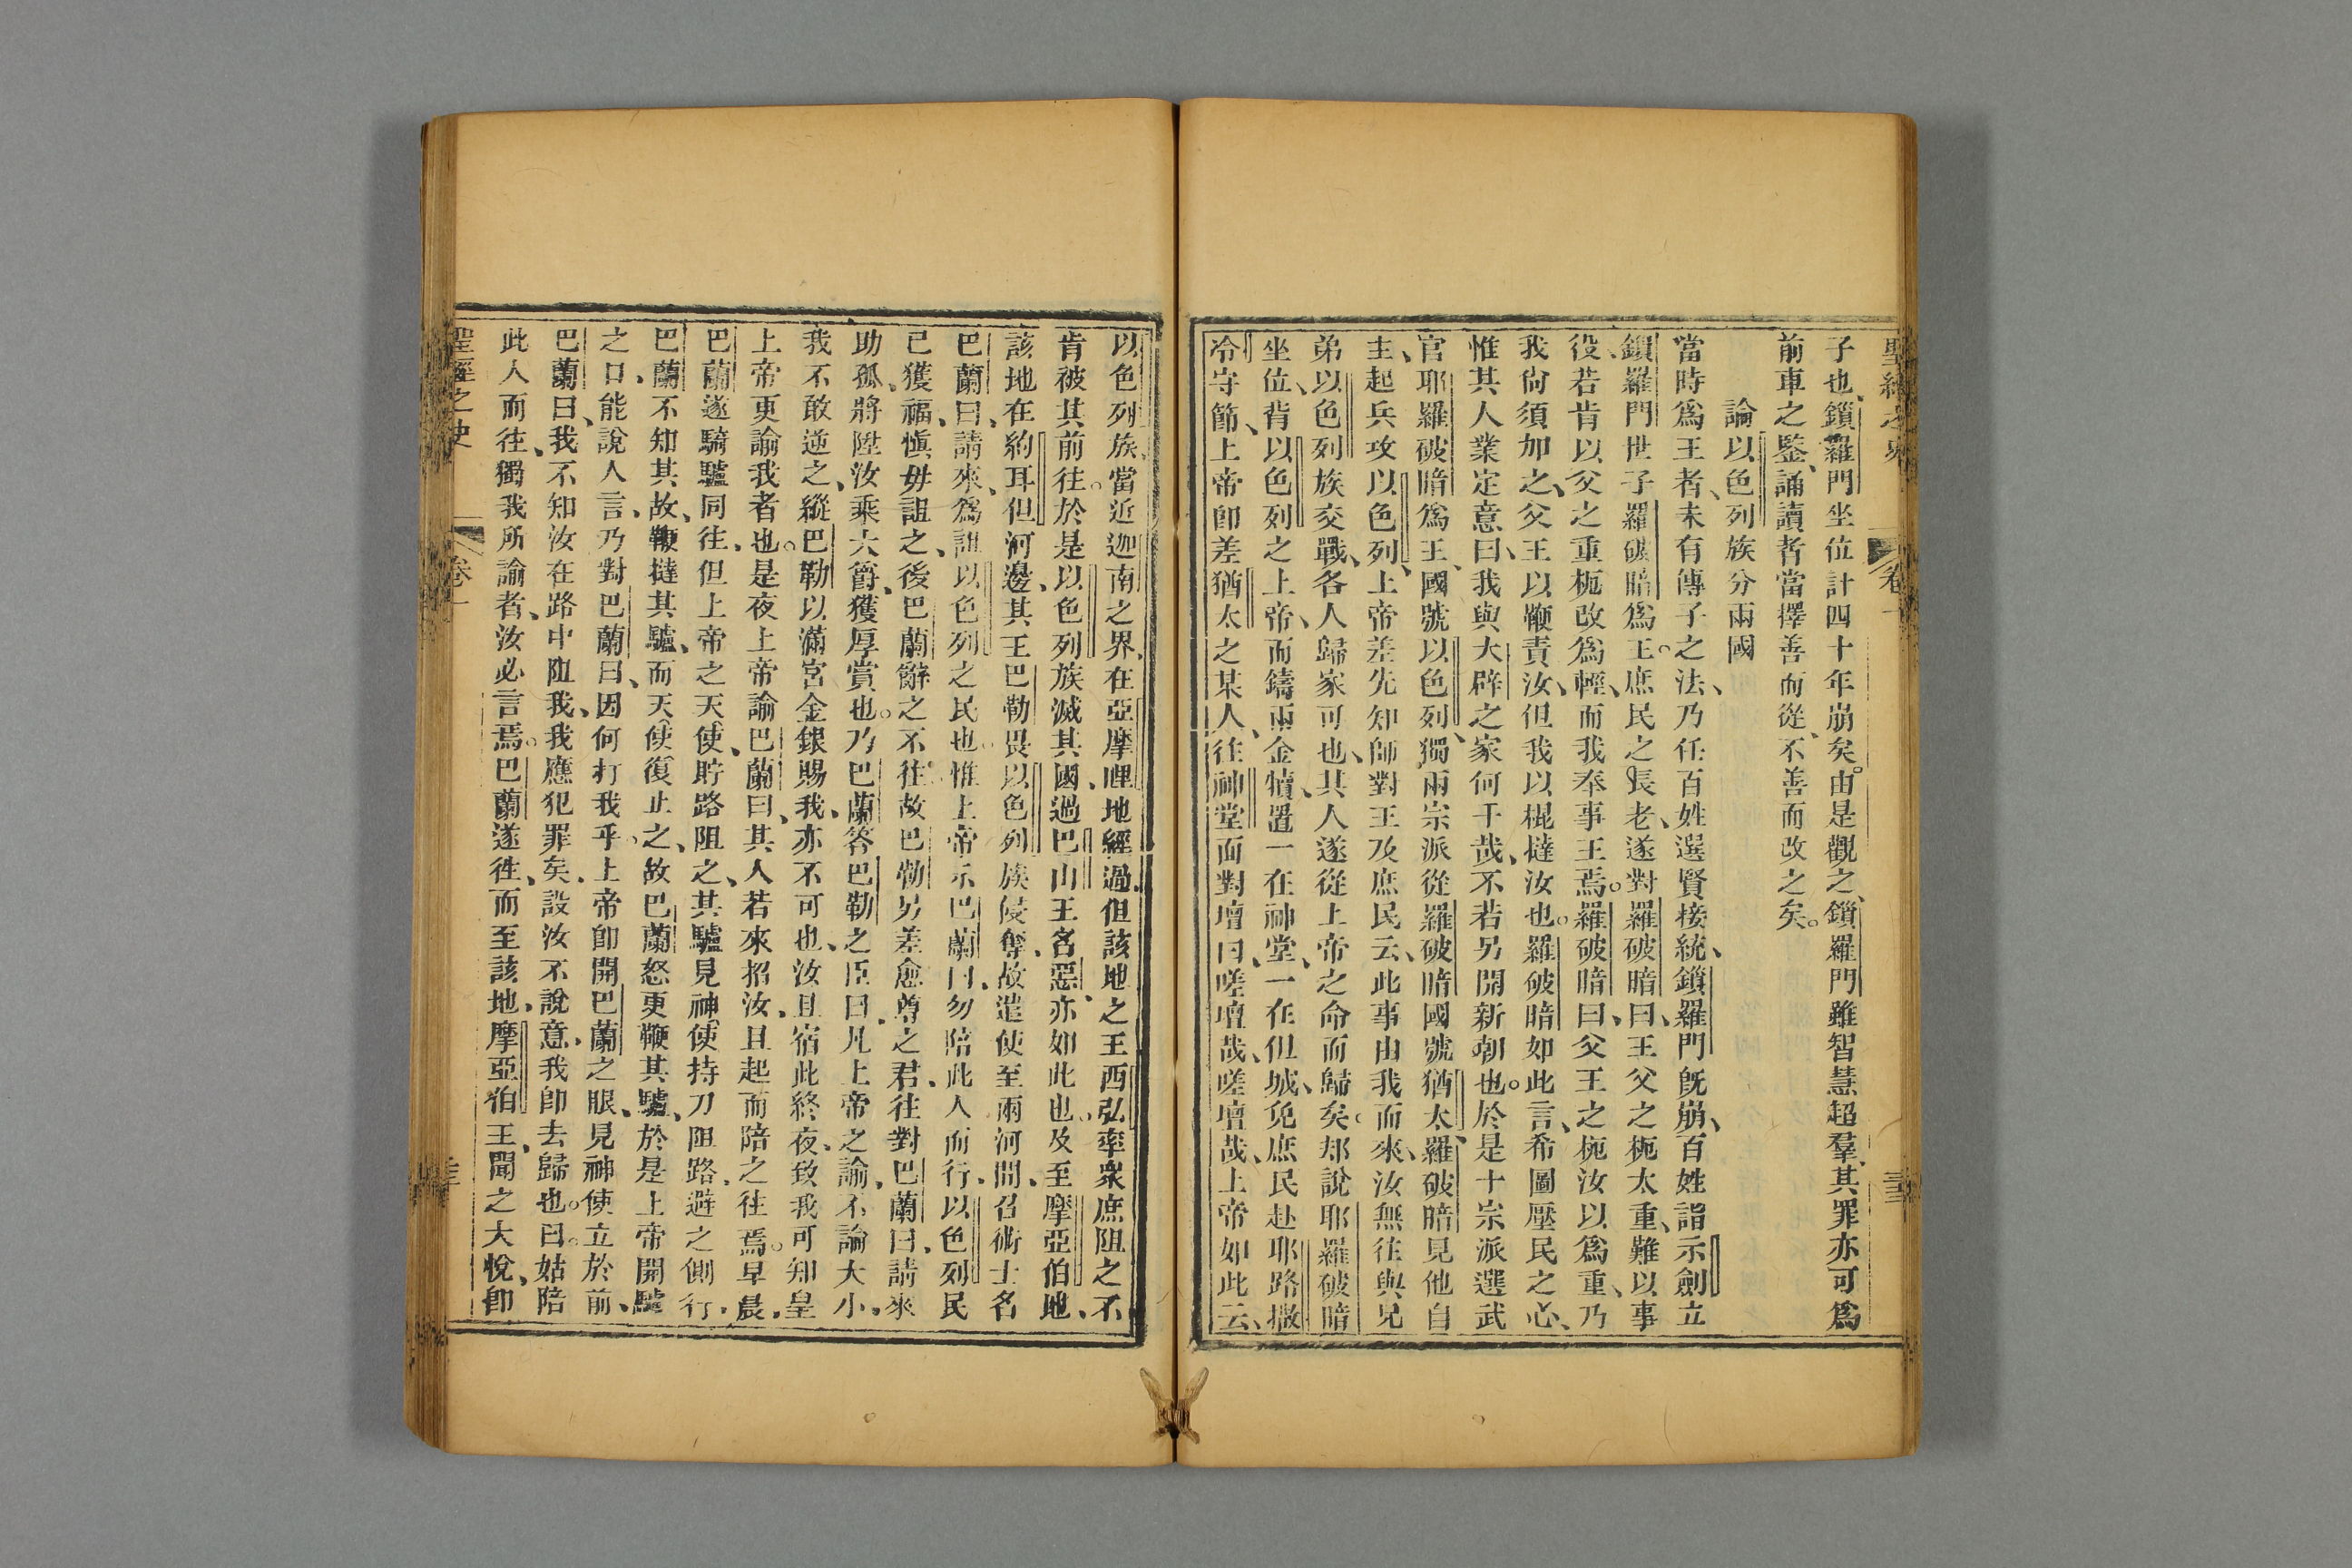 聖經之史 卷一
子也、鎖羅門坐位計四十年崩矣。由是觀之、鎖羅門雖智慧超羣、其罪亦可爲
前車之鑒、誦讀者當擇善而從、不善而改之矣。
論以色列族分兩國
當時爲王者、未有傳子之法、乃任百姓選賢接統、鎖羅門旣崩、百姓詣示劍立
鎖羅門世子羅破暗爲王。庶民之長老、遂對羅破暗曰、王父之軛太重、難以事
役、若肯以父之重軛改爲輕、而我奉事王焉。羅破暗曰、父王之軛汝以爲重、乃
我尙須加之、父王以鞭責汝、但我以棍撻汝也。羅破暗如此言、希圖壓民之心、
惟其人業定意曰、我與大辟之家何干哉、不若另開新朝也。於是十宗派選武
官耶羅破暗爲王、國號以色列、獨兩宗派從羅破暗國號猶太、羅破暗見他自
主、起兵攻以色列、上帝差先知師對王及庶民云、此事由我而來、汝無往與兄
弟以色列族交戰、各人歸家可也、其人遂從上帝之命而歸矣。却說耶羅破暗
坐位、背以色列之上帝、而鑄兩金犢、置一在神堂、一在但城、免庶民赴耶路撒
冷守節、上帝卽差猶太之某人、往神堂面對壇曰、嗟壇哉、嗟壇哉、上帝如此云、
以色列族、當近迦南之界、在亞摩哩地經過、但該地之王西弘率衆庶阻之不
肯被其前往。於是以色列族滅其國、過巴山王名惡、亦如此也。及至摩亞伯地、
該地在約耳但河邊、其王巴勒畏以色列族侵奪、故遣使至兩河間、召術士名
巴蘭曰、請來爲詛以色列之民也。惟上帝示巴蘭曰、勿陪此人而行、以色列民
已獲福、愼毋詛之、後巴蘭辭之不往。故巴勒另差愈尊之君、往對巴蘭曰、請來
助孤、將陞汝乘大爵、獲厚賞也。乃巴蘭答巴勒之臣曰、凡上帝之諭、不論大小、
我不敢逆之、縱巴勒以滿宮金銀賜我、亦不可也、汝且宿此終夜、致我可知皇
上帝更諭我者也。是夜上帝諭巴蘭曰、其人若來招汝、且起而陪之往焉。早晨、
巴蘭遂騎驢同往、但上帝之天使、貯路阻之、其驢見神使持刀阻路、避之側行、
巴蘭不知其故、鞭撻其驢、而天使復止之、故巴蘭怒更鞭其驢、於是上帝開驢
之口、能說人言、乃對巴蘭曰、因何打我乎。上帝卽開巴蘭之眼、見神使立於前、
巴蘭曰、我不知汝在路中阻我、我應犯罪矣、設汝不說意、我卽去歸也。曰、姑陪
此人而往、獨我所諭者、汝必言焉。巴蘭遂往、而至該地、摩亞伯王、聞之大悅、卽
聖經之史 卷一